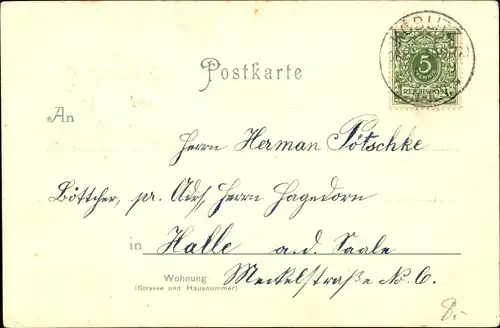 Postkarte
5
PFENNIG
REICHSPOST
An
Herrn Herman Pötschke
Böttcher, pr. Adrs. Herrn Hagedorn
in Halle a.d. Saale
Wohnung Meckelstraße No. 6.
(Strasse und Hausnummer)